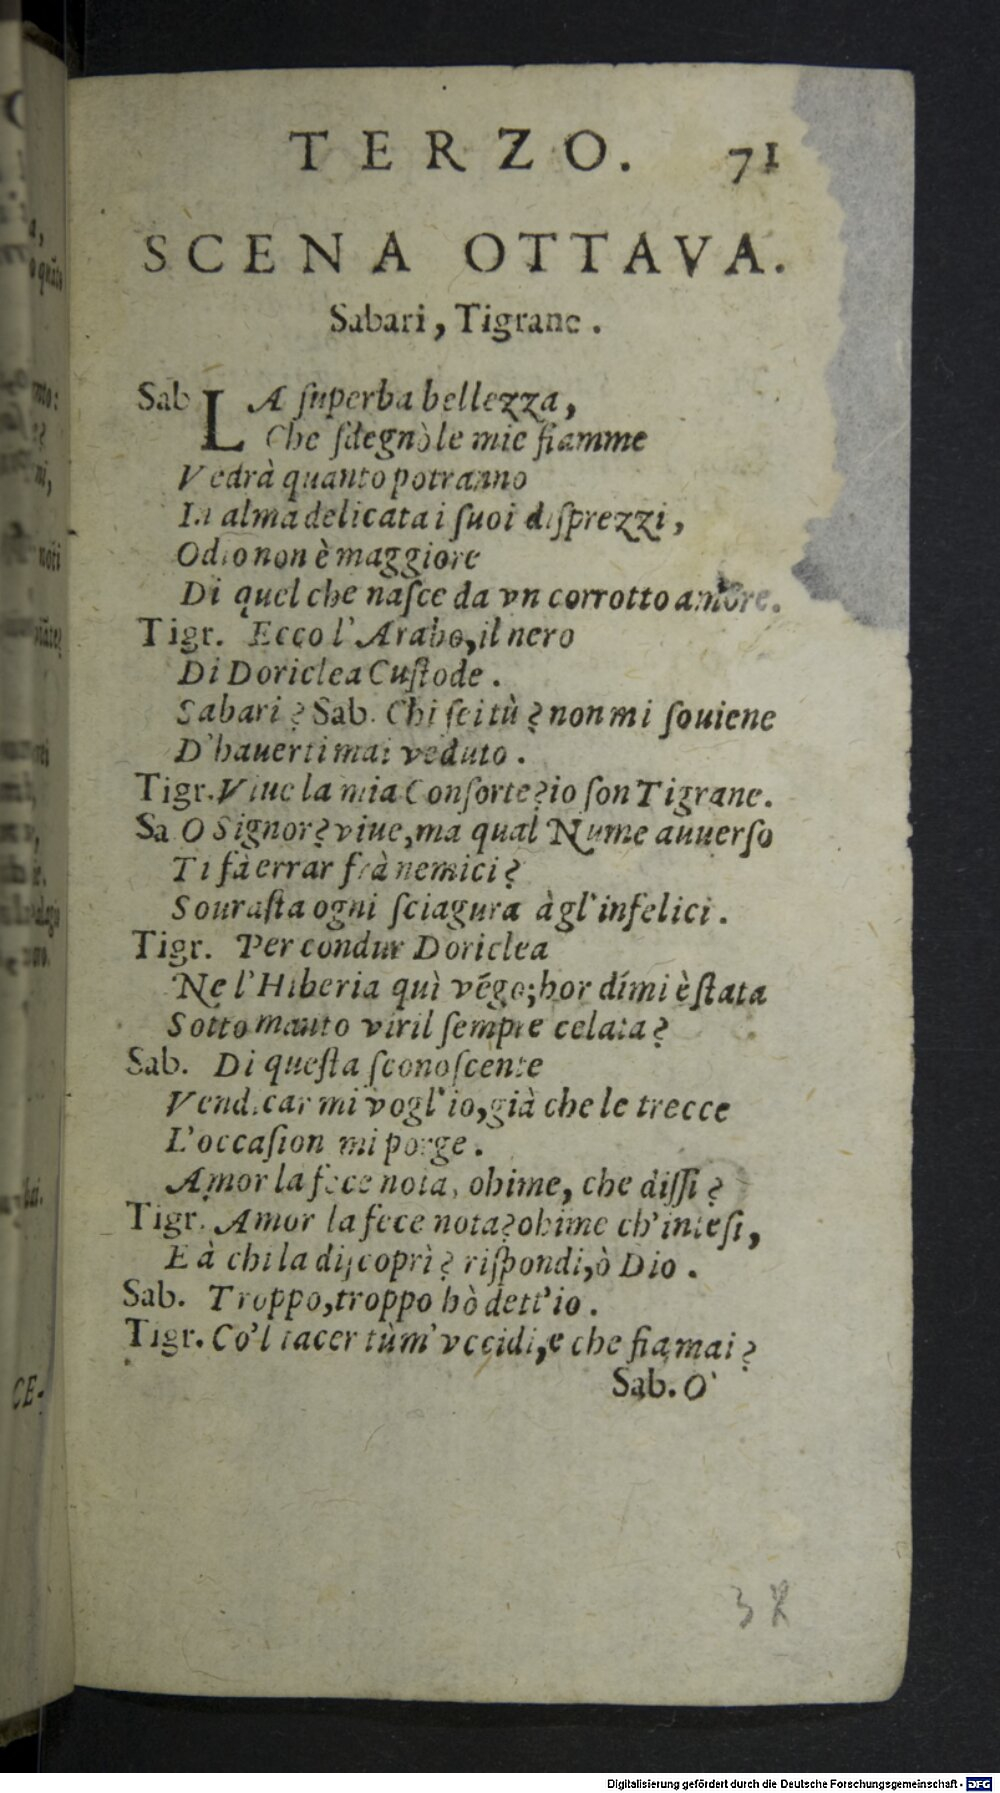 TERZO. 71
SCENA OTTAVA.
Sabari, Tigrane.
Sab LA ſuperba bellezza,
Che ſdegnò le mie fiamme
Vedrà quanto potranno
In alma delicata i ſuoi diſprezzi,
Odio non è maggiore
Di quel che naſce da vn corrotto amore.
Tigr. Ecco l'Arabo, il nero
Di Doriclea Cuſtode.
Sabari? Sab. Chi ſei tù? non mi ſouiene
D'hauerti mai veduto.
Tigr. Viue la mia Conſorte? io ſon Tigrane.
Sa O Signor? viue, ma qual Nume auuerſo
Ti fà errar frà nemici?
Souraſta ogni ſciagura à gl'infelici.
Tigr. Per condur Doriclea
Ne l'Hiberia quì vẽgo; hor dimi è ſtata
Sotto manto viril ſempre celata?
Sab. Di queſta ſconoſcente
Vendicar mi vogl'io, già che le trecce
L'occaſion mi porge.
Amor la fece nota, ohime, che diſſi?
Tigr. Amor la fece nota? ohime ch'inteſi,
E à chi la diſcoprì? riſpondi, ò Dio.
Sab. Troppo, troppo hò dett'io.
Tigr. Co'l tacer tù m'vccidi, e che fia mai?
Sab. O'
38
CE-
Digitalisierung gefördert durch die Deutsche Forschungsgemeinschaft - DFG